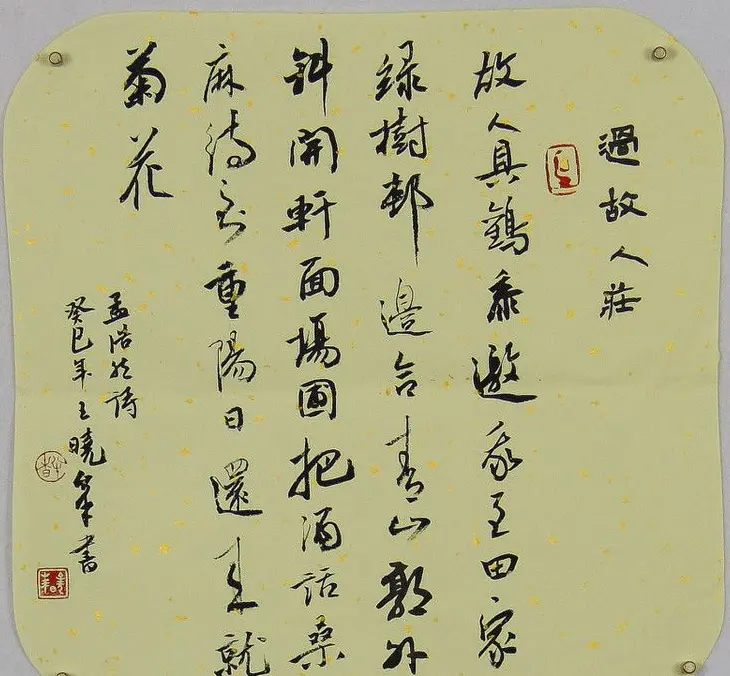 過故人莊
故人具鷄黍邀我至田家
綠樹邨邊合青山郭外
斜開軒面場圃把酒話桑
麻待到重陽日還來就
菊花
孟浩然詩
癸巳年王曉軍書